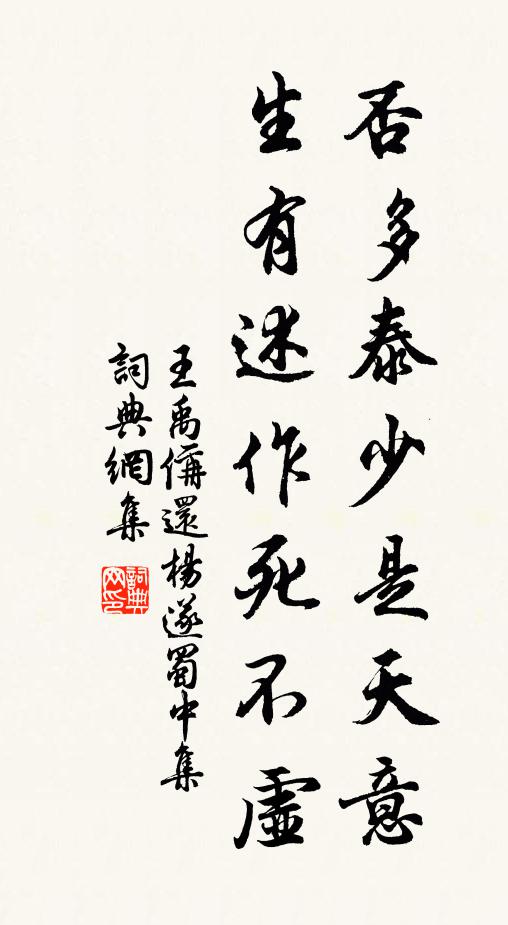 否多泰少是天意
生有述作死不虛
王禹偁還楊遂蜀中集
詞典網集
詞典網印